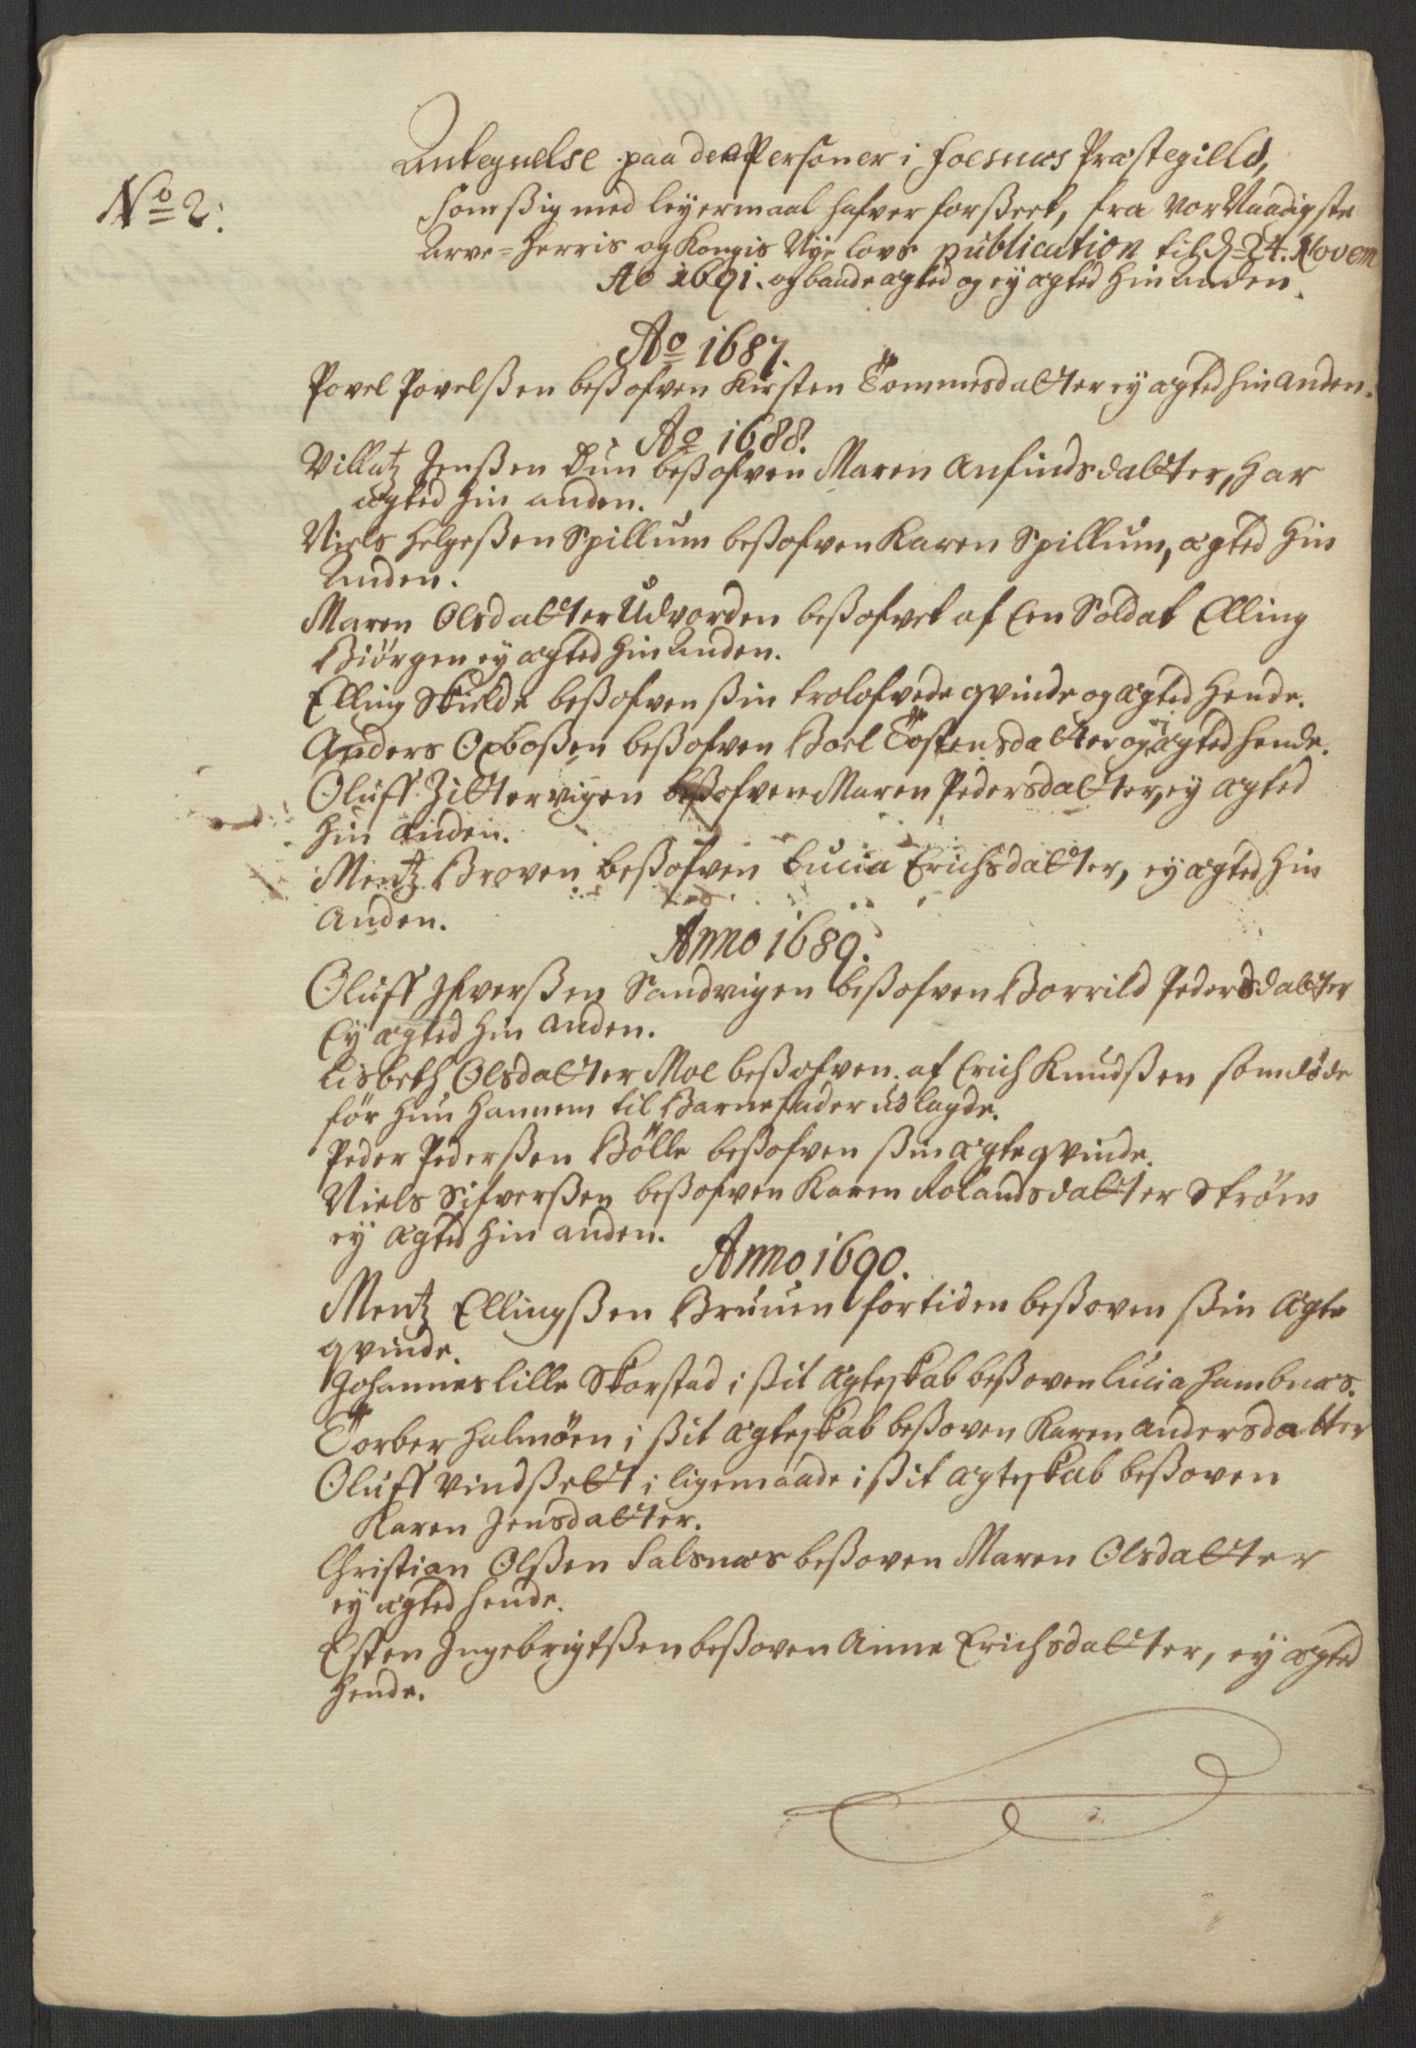 No 2:
Antegnelse paa de Personer i Foesnæs Præstegilld,
som ßig med leyermaal hafver forßeet, fra vor Naadigste
Arve-Herris og Kongis Nye lovs publication til d. 24. Novem
Ao 1691. og baade ægted og ey ægted hin anden.
Ao 1687.
Povel Povelßen beßofven Kirsten Tommesdatter ey ægted hin anden.
Ao 1688.
Villatz Jenßen Dun beßofven Maren Anfindsdatter, har
ægted hin anden.
Niels Helgeßen Spillum beßofven Karen Spillum, ægted hin
Anden.
Maren Olsdatter Udvorden beßofvet af Een Soldat Elling
Biörgen ey ægted hin Anden.
Elling Skielde beßofven ßin trolofvede qvinde og ægted hende.
Anders Oxboßen beßofven Boel Töstensdatter og ey ægted hende.
Oluff Zittervigen beßofven Maren Pedersdatter, ey ægted
hin anden.
Mentz Broven beßofven Lucia Erichsdatter, ey ægted hin
Anden.
Anno 1689.
Oluff Ifverßen Sandvigen beßofven Borrild Pedersdatter
Ey ægted hin anden.
Lisbeth Olsdatter Moe beßofven af Erich Knudßen som döde
för hun hannem til Barnefader udlagde.
Peder Pederßen Bölle beßofven ßin ægteqvinde.
Niels Sifverßen beßofven Karen Rolandsdatter Ström
ey ægted hin anden.
Anno 1690.
Mentz Ellingßen Bruuen fortiden beßoven ßin Ægte
qvinde.
Johannes lille Skorstad i ßit Ægteskab beßoven Lucia Hambnæs.
Torber Halmöen i ßit ægteskab beßoven Karen Andersdatter
Oluff Vindßett i ligemaade i ßit ægteskab beßoven
Karen Jensdatter.
Christian Olßen Salsnæs beßoven Maren Olsdatter
ey ægted hende.
Esten Ingebrigtßen beßoven Anne Erichsdatter, ey ægted
hende.